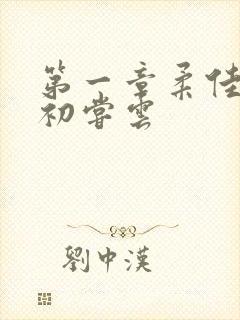 第一章柔佳
初尝雲
劉中漢